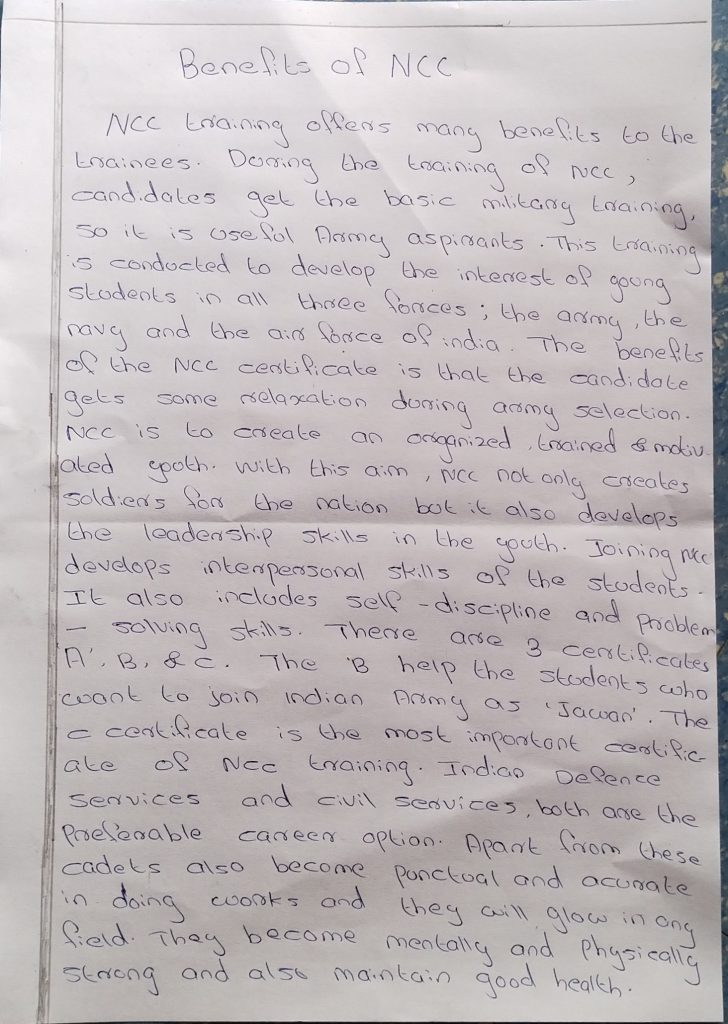 Benefits of NCC
NCC training offers many benefits to the
trainees. During the training of NCC,
candidates get the basic military training,
so it is useful Army aspirants. This training
is conducted to develop the interest of young
students in all three forces; the army, the
navy and the air force of india. The benefits
of the NCC certificate is that the candidate
gets some relaxation during army selection.
NCC is to create an organized, trained & motiv-
ated youth. With this aim, NCC not only creates
soldiers for the nation but it also develops
the leadership skills in the youth. Joining NCC
develops interpersonal skills of the students.
It also includes self-discipline and problem
- solving skills. There are 3 certificates
'A', B, & C. The 'B help the students who
want to join indian Army as 'Jawan'. The
C certificate is the most important certific-
ate of NCC training. Indian Defence
services and civil services, both are the
Preferable career option. Apart from these
cadets also become punctual and acurate
in doing works and they will glow in any
field. They become mentally and Physically
strong and also maintain good health.